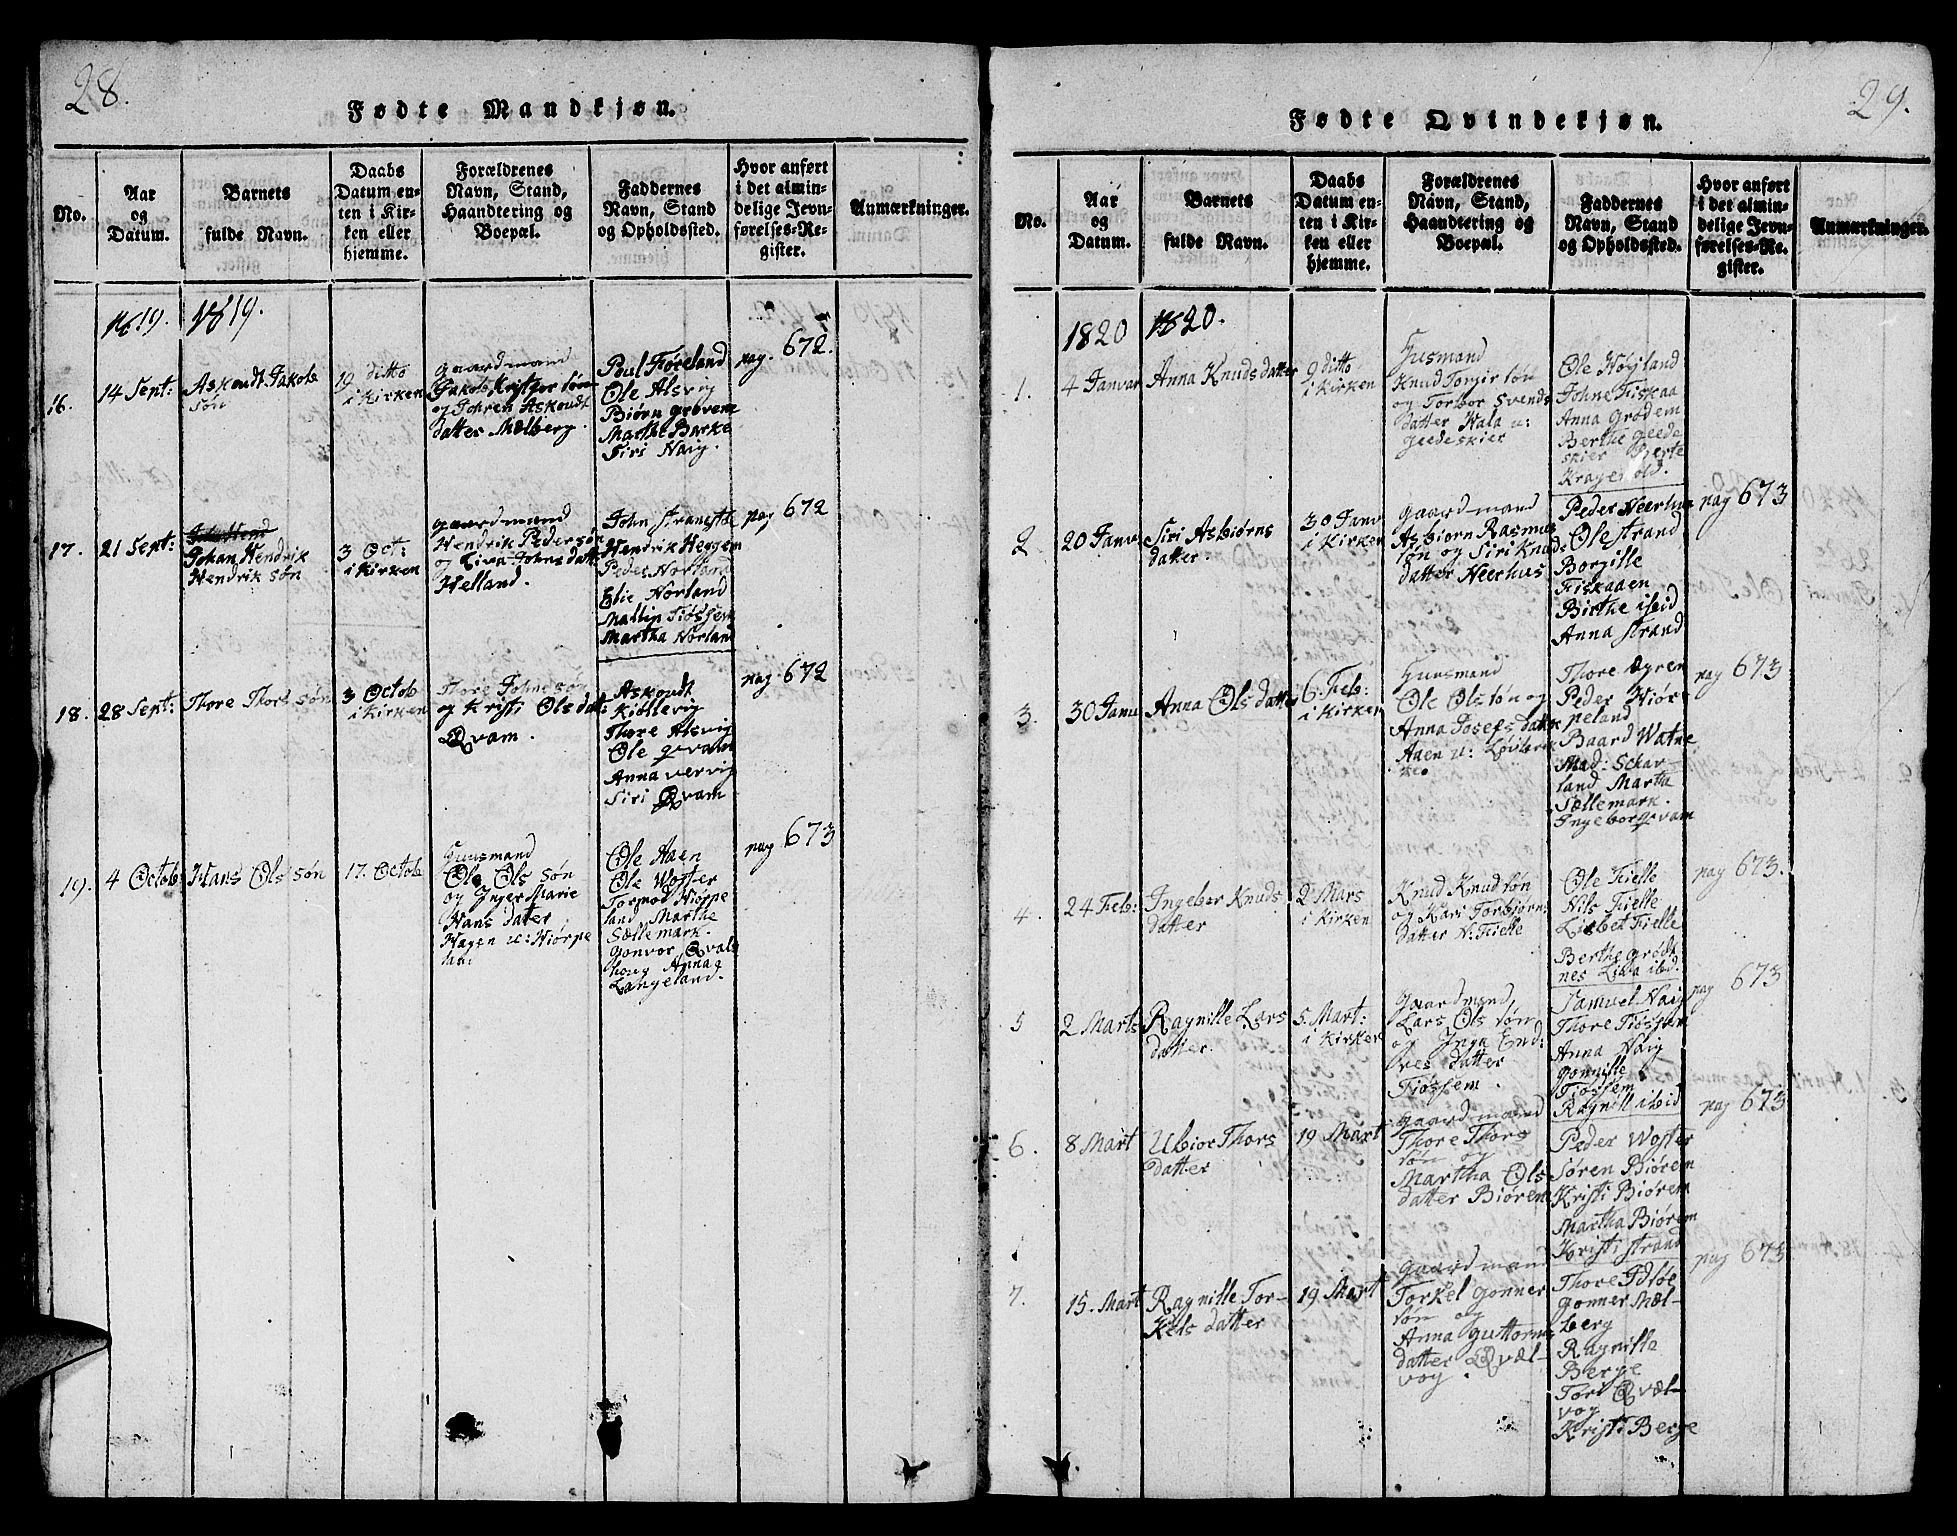 28.
Fødte Mandkjøn.
No.
Aar
og
Datum.
Barnets
fulde Navn.
Daabs
Datum en-
ten i Kir-
ken eller
hjemme.
Forældrenes
Navn, Stand,
Haandtering og
Boepæl.
Faddernes
Navn, Stand
og Opholdssted.
Hvor anført
i det almin-
delige Jevn-
førelses-Re-
gister.
Anmærkninger.
1819.
1819.
16.
14 Sept:
Askoudt Jakobs
søn
19 ditto
i Kirken
gaardmand
Jakob Kristfer søn
og Johren Askoudt
datter Mælberg.
Poul Føreland
Ole Alsvig
Biørn grovene
Marthe Barke
Siri Naig.
pag. 672.
17.
21 Sept:
Johan Hendrik
Hendrik søn
3 Oct:
i Kirken
gaardmand
Hendrik Pedersøn
og Johns datt:
Helland.
John
Hendrik Heggem
Peder Norland
Elie Norland
Mallin Fiøssem
Martha Norland
pag 672
18.
28 Sept:
Thore Thors søn
3 Octob
i Kirken
Thore Johnssøn
og Kristi Ols dat:
Qvam.
Askoudt
Kiøllevig
Thore Alsvig
Ole qvam
Anna vervig
Siri Qvam
pag 672
19.
4 Octob
Hans Ols søn
17. Octob
Huusmand
Ole Ols søn
og Inger Marie
Hans dater
Hagen u: Hiørpe
lan:
Ole Aaen
Ole Woster
Tormo Hiørpe
land, Marthe
Sællemark.
gonvor Qvals
houg Anna
Langeland.
pag 673
29.
Fødte Qvindekjøn.
No.
Aar
og
Datum.
Barnets
fulde Navn.
Daabs
Datum en-
ten i Kir-
ken eller
hjemme.
Forældrenes
Navn, Stand,
Haandtering og
Boepæl.
Faddernes
Navn, Stand
og Opholdssted.
Hvor anført
i det almin-
delige Jevn-
førelses-Re-
gister.
Anmærkninger.
1820
1820.
1.
4 Janvar
Anna Knuds datter
9 ditto
i Kirken
Husmand
Knud Torgir søn
og Torbor Svends
datter Hala u:
geedeskier
Ole Høyland
Johne Fiskaa
Anna Grødem
Berthe geede
skier Berte
Kragevold.
2
20 Janv:
Siri Asbiørns
datter
30 Janv
i Kirken
gaardmand
Asbiørn Rasmus
søn og Siri Knuds
datter Neerhus
Peder Neerhus
Ole Strand
Borgille
Fiskaaen
Birthe ibid
Anna Strand
pag 673
3.
30 Janv
Anna Ols datter
6. Feb:
i Kirken
Huusmand
Ole Ols søn og
Anna Josefs datter
Aaen u:
Thore Øgren
Peder Hiør
peland
Baard Watne
Mad: Schar
land, Marta
Sællemark.
Ingeborg qvam
pag 673
4.
24 Feb:
Ingebor Knuds
datter
2 Mars
i Kirken
Knud Knud søn
og Kari Torbiørn:
datter N: Fielle
Ole Fielle
Nils Fielle
Lisbet Fielle
Berthe grødt
nes Liva ibid.
pag 673.
5
2 Marts
Ragnille Lars
datter.
5. Mart:
i Kirken
Gaardmand
Lars Ols søn
og Inga End:
res datter
Fiøssem.
Samuel Naig
Thore Fiøssem
Anna Naig
gonnille
Fiøssem
Ragnill ibid
pag 673
6.
8 Mart
Ubior Thors
datter
19 Mart
gaardmand
Thore Thors
søn og
Martha Ols
datter Biørem
Peder Woster
Søren Biørem
Kristi Biørem
Martha Biørem
Kristi Strand
pag 673
7.
15. Mart
Ragnille Tor-
kels datter
19 Mart
gaardmand
Torkel gonner
søn og
Anna guttorms
datter Qvæl-
vog.
Thore Idsøe
gonner Mæl-
berg
Ragnille
Berge
Tori Qvæl-
vog
Kristi Berge
pag 673